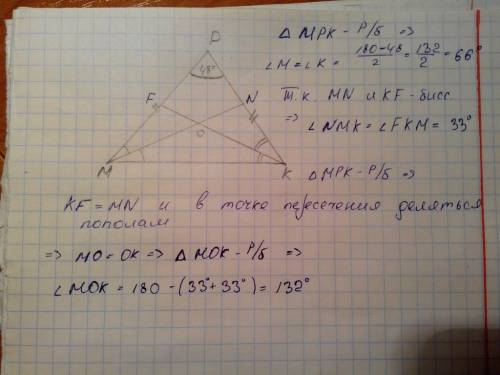 △ MPK - Р/б ⇒
∠M = ∠K = (180-48)/2 = 132/2 = 66°
Т.к. MN и KF - бисс
⇒ ∠NMK = ∠FKM = 33°
△ MPK - Р/б ⇒
P
48°
F
N
O
M
K
KF = MN и в точке пересечения деляться
пополам
⇒ MO = OK ⇒ △ MOK - Р/б ⇒
∠MOK = 180 - (33°+33°) = 132°